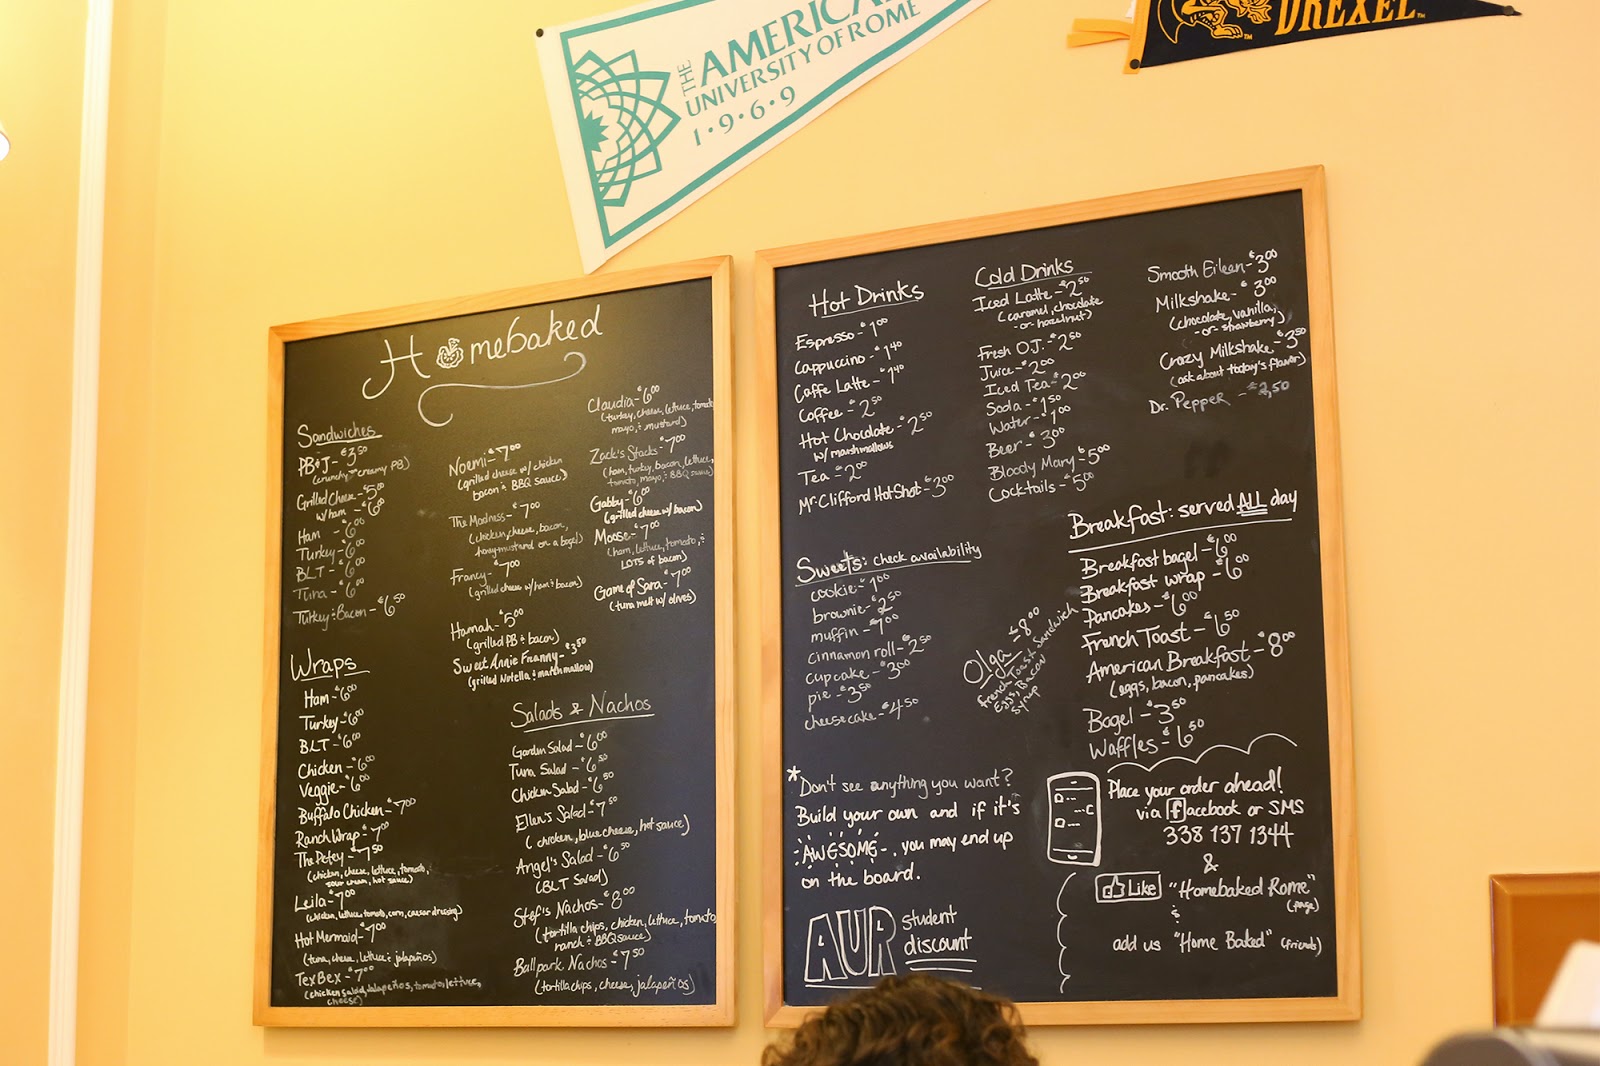 THE AMERICA
UNIVERSITY OF ROME
1·9·6·9
DREXEL™
Homebaked
Sandwiches
PB&J - €3.50
(crunchy creamy PB)
Grilled Cheese - €5.00
w/ ham - €6.00
Ham - €6.00
Turkey - €6.00
BLT - €6.00
Tuna - €6.00
Turkey & Bacon - €6.50
Wraps
Ham - €6.00
Turkey - €6.00
BLT - €6.00
Chicken - €6.00
Veggie - €6.00
Buffalo Chicken - €7.00
Ranch Wrap - €7.00
The Petey - €7.50
(chicken, cheese, lettuce, tomato,
sour cream, hot sauce)
Leila - €7.00
(chicken, lettuce, tomato, corn, caesar dressing)
Hot Mermaid - €7.00
(tuna, cheese, lettuce & jalapeños)
TexBex - €7.00
(chicken salad, jalapeños, tomato, lettuce,
cheese)
Noemi - €7.00
(grilled cheese w/ chicken
bacon & BBQ sauce)
The Madness - €7.00
(chicken, cheese, bacon,
honey-mustard on a bagel)
Francy - €7.00
(grilled cheese w/ ham & bacon)
Hannah - €5.00
(grilled PB & bacon)
Sweet Annie Franny - €3.50
(grilled Nutella & marshmallow)
Claudia - €6.00
(turkey, cheese, lettuce, tomato
mayo, & mustard)
Zack's Stacks - €7.00
(ham, turkey, bacon, lettuce,
tomato, mayo, & BBQ sauce)
Gabby - €6.00
(grilled cheese w/ bacon)
Moose - €7.00
(ham, lettuce, tomato, &
LOTS of bacon)
Game of Sara - €7.00
(tuna melt w/ olives)
Salads & Nachos
Garden Salad - €6.00
Tuna Salad - €6.50
Chicken Salad - €6.50
Ellen's Salad - €7.50
(chicken, blue cheese, hot sauce)
Angel's Salad - €6.50
(BLT Salad)
Stef's Nachos - €8.00
(tortilla chips, chicken, lettuce, tomato
ranch & BBQ sauce)
Ballpark Nachos - €7.50
(tortilla chips, cheese, jalapeños)
Hot Drinks
Espresso - €1.00
Cappuccino - €1.40
Caffe Latte - €1.40
Coffee - €2.50
Hot Chocolate - €2.50
w/ marshmallows
Tea - €2.00
Mr. Clifford Hot Shot - €3.00
Cold Drinks
Iced Latte - €2.50
(caramel, chocolate
-or- hazelnut)
Fresh O.J. - €2.50
Juice - €2.00
Iced Tea - €2.00
Soda - €1.50
Water - €1.00
Beer - €3.00
Bloody Mary - €5.00
Cocktails - €5.00
Smooth Eileen - €3.00
Milkshake - €3.00
(chocolate, vanilla,
-or- strawberry)
Crazy Milkshake - €3.50
(ask about today's flavor)
Dr. Pepper - €2,50
Sweets: check availability
cookie - €1.00
brownie - €2.50
muffin - €1.00
cinnamon roll - €2.50
cupcake - €3.00
pie - €3.50
cheesecake - €4.50
Olga - €8.00
French Toast Sandwich
Eggs, Bacon
Syrup
Breakfast: served ALL day
Breakfast bagel - €6.00
Breakfast wrap - €6.00
Pancakes - €6.00
French Toast - €6.50
American Breakfast - €8.00
(eggs, bacon, pancakes)
Bagel - €3.50
Waffles - €6.50
*Don't see anything you want?
Build your own and if it's
-AWESOME-, you may end up
on the board.
AUR student
discount
Place your order ahead!
via facebook or SMS
338 137 1344
&
Like "Homebaked Rome"
(page)
&
add us "Home Baked" (friends)